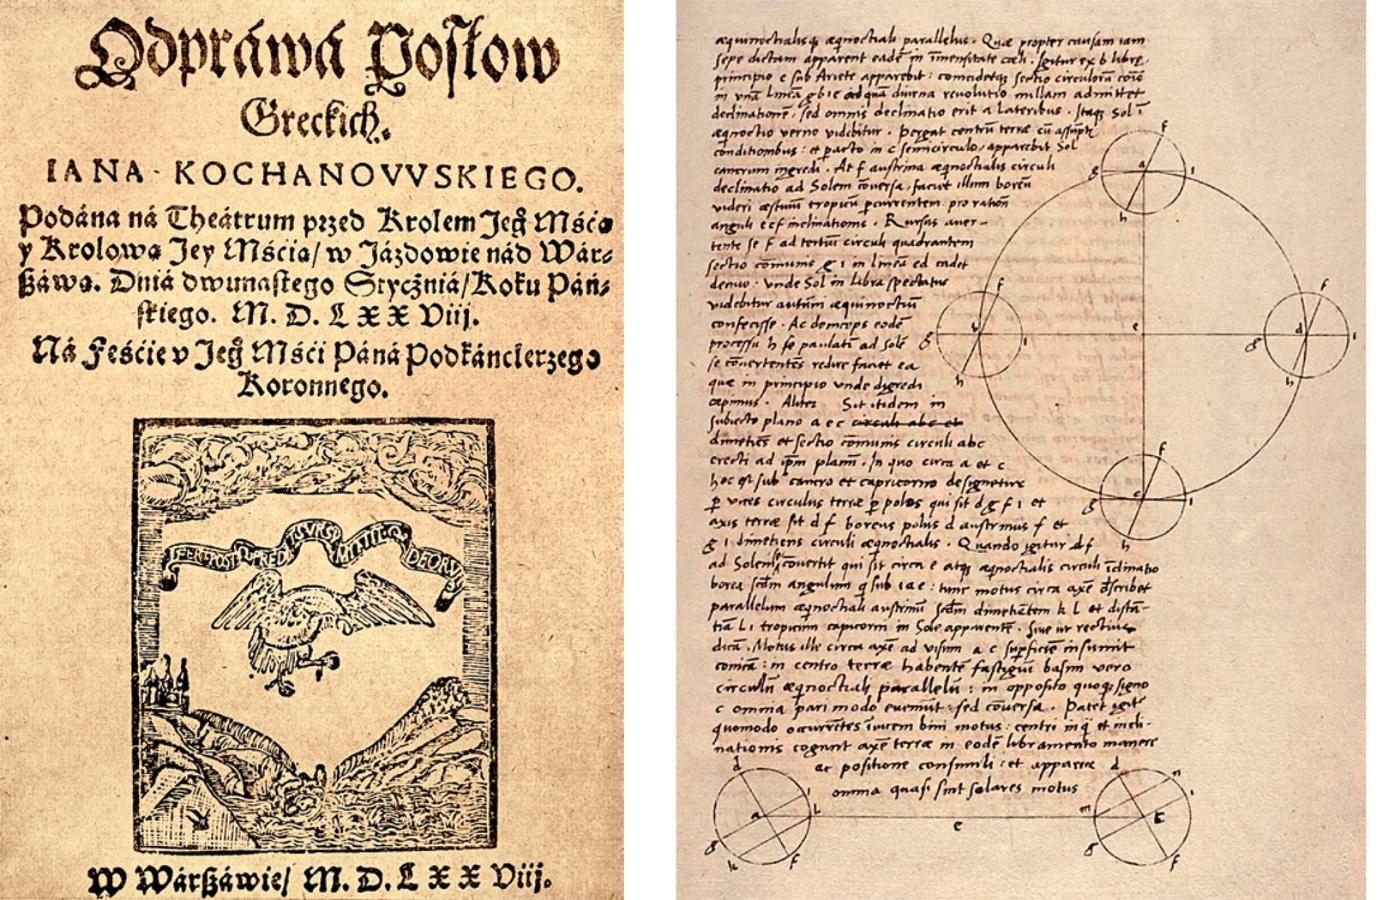 Odpráwá Posłow
Greckich.
IANA KOCHANOVVSKIEGO.
Podána ná Theátrum przed Krolem Jeg̊ Mścią
y Krolową Jey Mścią/ w Jázdowie nád Wár-
ßáwą. Dniá dwunastego Stycżniá/ Roku Páń-
skiego. M. D. LXXViij.
Ná Feście v Jeg̊ Mści Páná Podkánclerzego
Koronnego.
W Wárßáwie/ M. D. LXXViij.
æquinoctialisq; æqnoctiali parallelus. Quæ propter causam iam
sepe dictam apparent eadē in īmensitate cæli. Igitur ex b libræ
principio e sub Ariete apparebit: coincidetq; sectio circulorū
in vnā lineā g b i e ad quā diurna revolutio nullam admittet
declinationē, sed omnis declinatio erit a lateribus. Itaq; Sol ī
æqnoctio verno videbitur. Pergat centrū terræ cū assūptis
conditionibus: et pacto in c semicirculo, apparebit Sol
cancrum ingredi. At f austrina æqnoctialis circuli
declinatio ad Solem cōversa, faciet illum boreū
videri æstiuū tropicū percurrentem. pro ratiōn
anguli e c f inclinationis. Rursus auer-
tente se f ad tertiū circuli quadrantem
sectio cōmunis g i in lineā ed cadet
denuo. unde Sol in Libra spectatus
videbitur autūni æquinoctiū
confecisse. Ac deinceps eodē
processu h f se paulatī ad Solē
se cōvertentes redire faciet ea
quæ in principio unde digredi
cœpimus. Aliter Sit itidem in
subiecto plano a e c circuli abc et
dimetiēs et sectio cōmunis circuli abc
erecti ad ip̄m planū. In quo circa a et c
hoc est sub cancro et capricorno designetur
p vices circulus terræ p polos qui sit d g f i et
axis terræ sit d f boreus polus d austrinus f et
g i dimetiens circuli æqnoctialis. Quando igitur d f
ad Solem se cōvertit qui sit circa e atq; æqnoctialis circuli īclinatio
borea scdm angulum q sub i a e: tunc motus circa axē describet
parallelum æqnoctiali austrinū scdm dimetiētem k l et distā-
tiā l i tropicum capricorni in Sole apparentē. Sive ut rectius
dicā. Motus ille circa axē ad visum a e superficiē insumit
conicā: in centro terræ habentē fastigiū basim vero
circulū æqnoctiali parallelū: in opposito quoq; signo
c omnia pari modo eveniūt: sed cōversa. Patet igit̄
quomodo occurrētes invicem bini motus: centri inq̄ et incli-
nationis cogunt axē terræ in eodē libramento manere
ac positione consimili: et apparere
omnia quasi sint solares motus